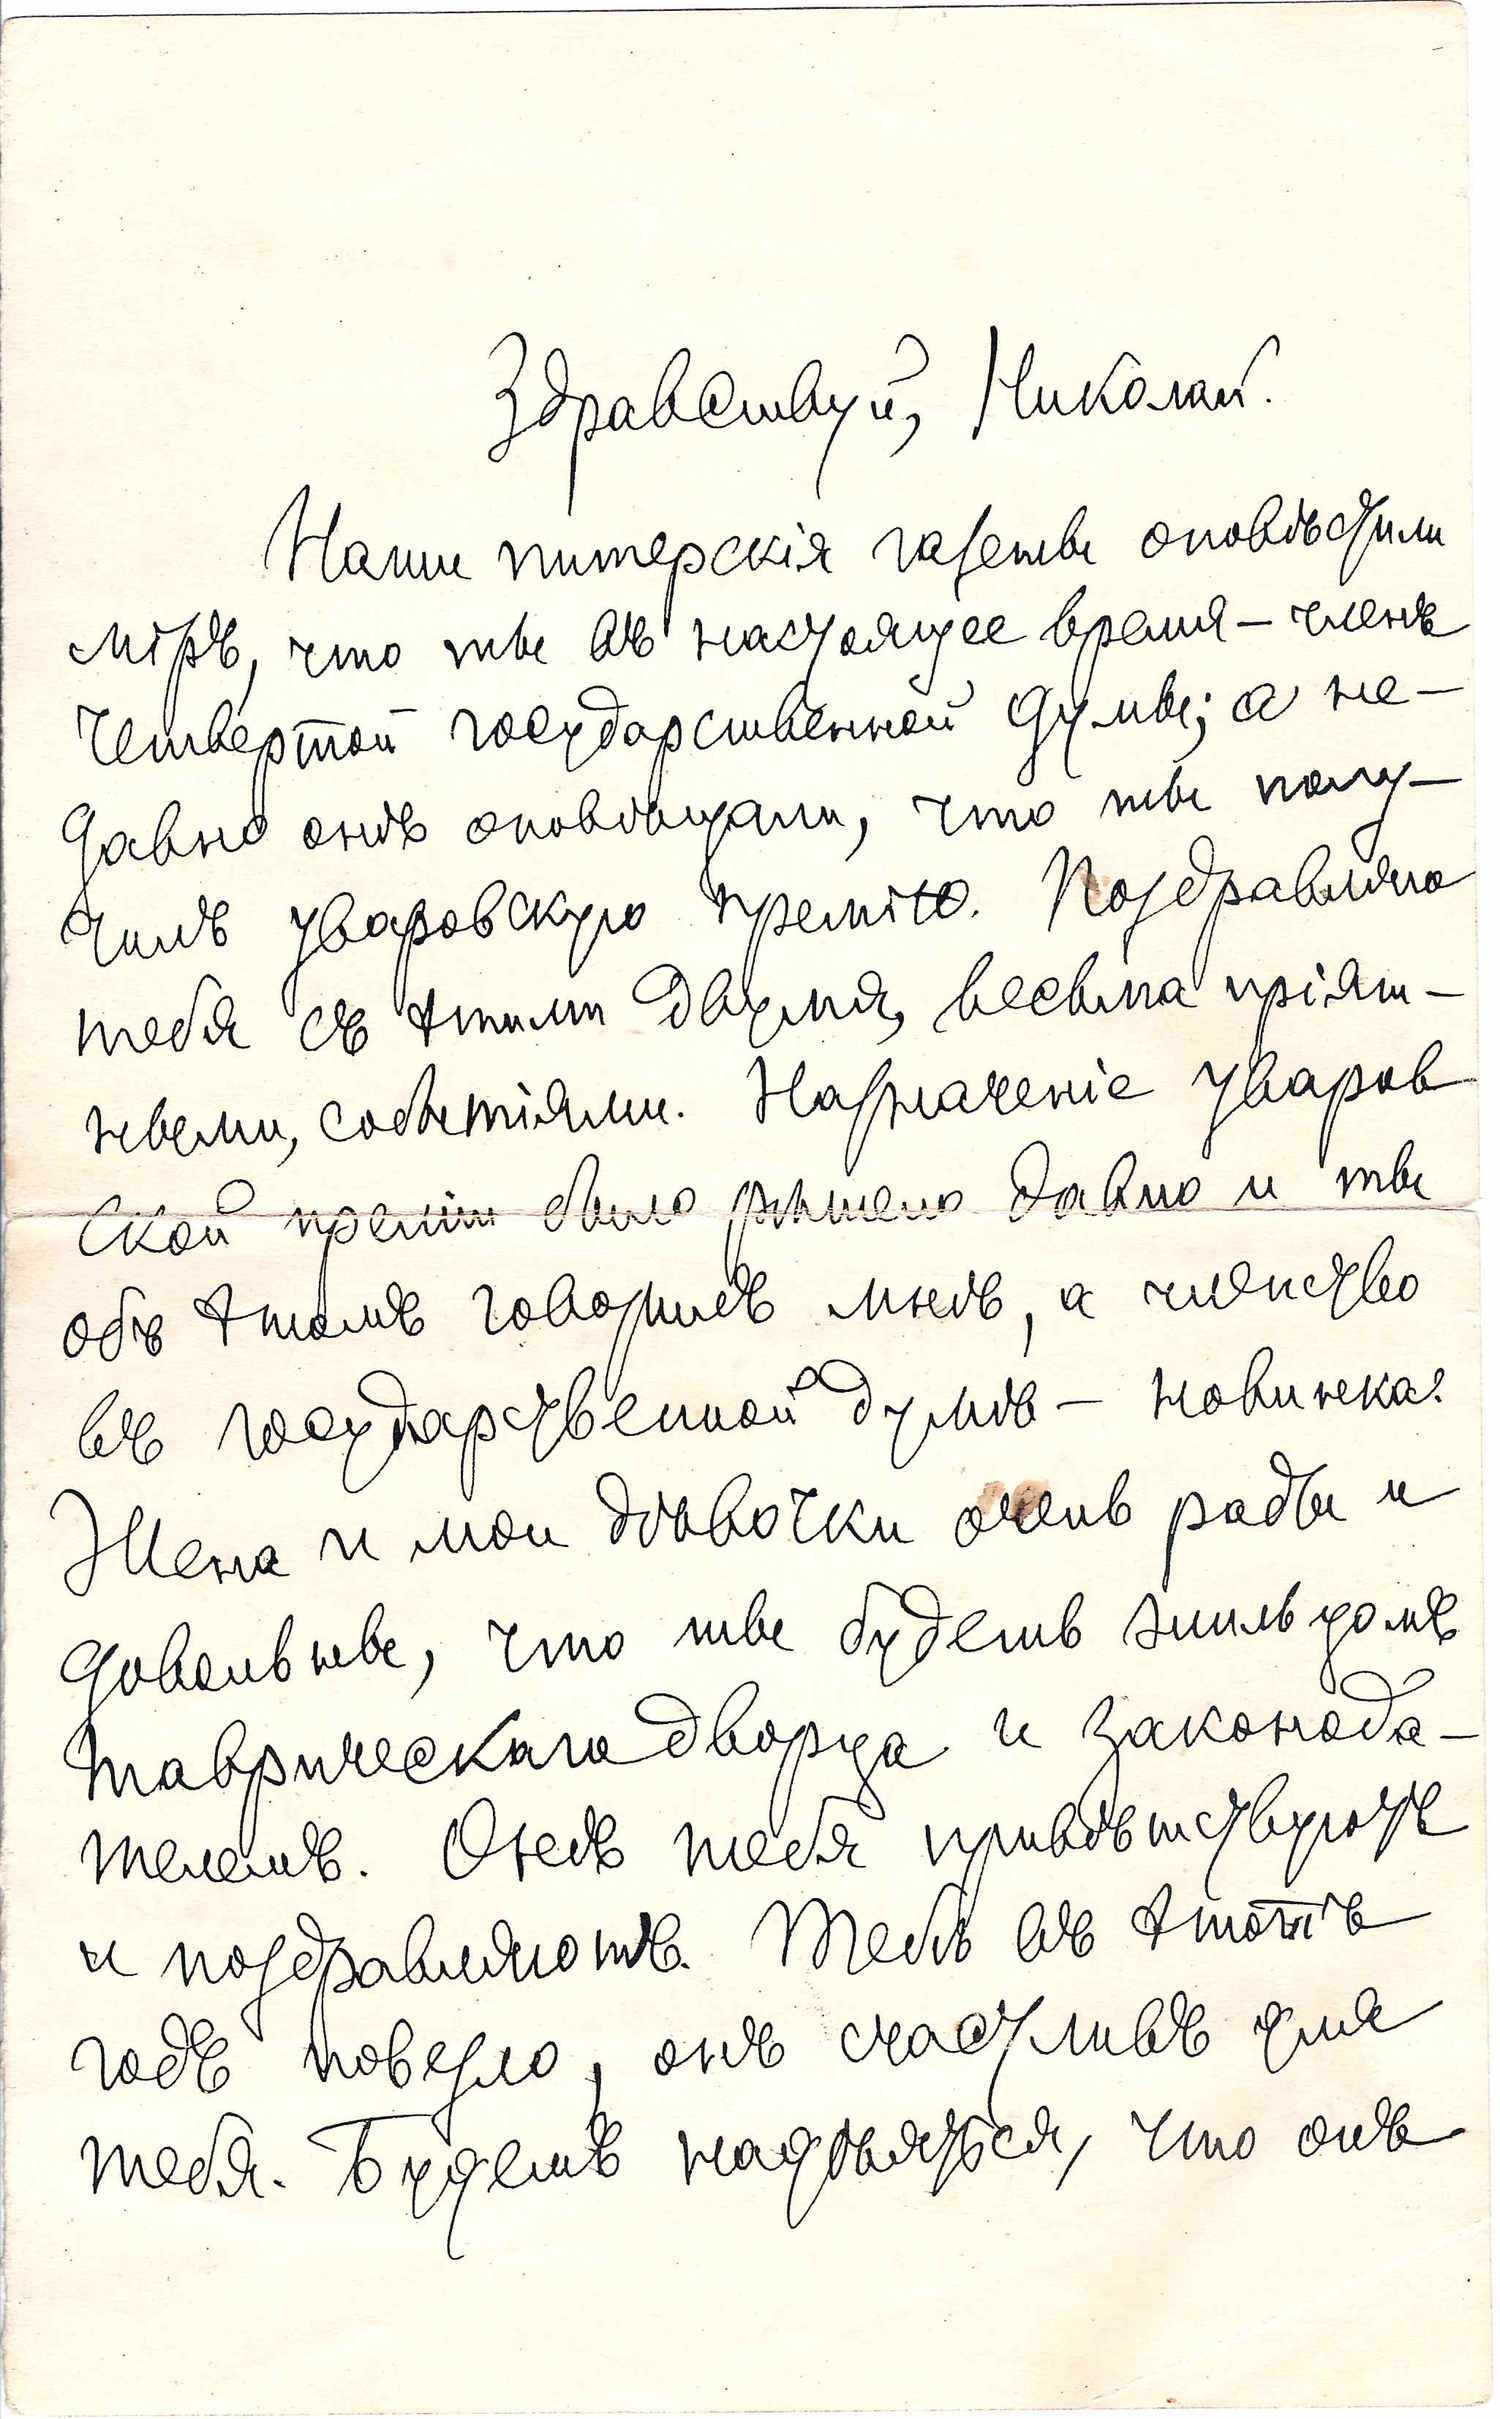 Здравствуй, Николай.
Наши питерскія газеты оповѣстили
міръ, что ты въ настоящее время – членъ
Четвертой государственной думы; а не-
давно онѣ оповѣщали, что ты полу-
чилъ уваровскую премію. Поздравляю
тебя съ этими двумя, весьма пріят-
ными, событіями. Назначеніе уваров
ской преміи было рѣшено давно и ты
объ этомъ говорилъ мнѣ, а членство
въ государственной думѣ – новинка.
Жена и мои дѣвочки очень рады и
довольны, что ты будешь жильцомъ
таврическаго дворца и законода-
телемъ. Онѣ тебя привѣтствуютъ
и поздравляютъ. Тебѣ въ этотъ
годъ повезло, онъ счастливъ для
тебя. Будемъ надѣяться, что онъ